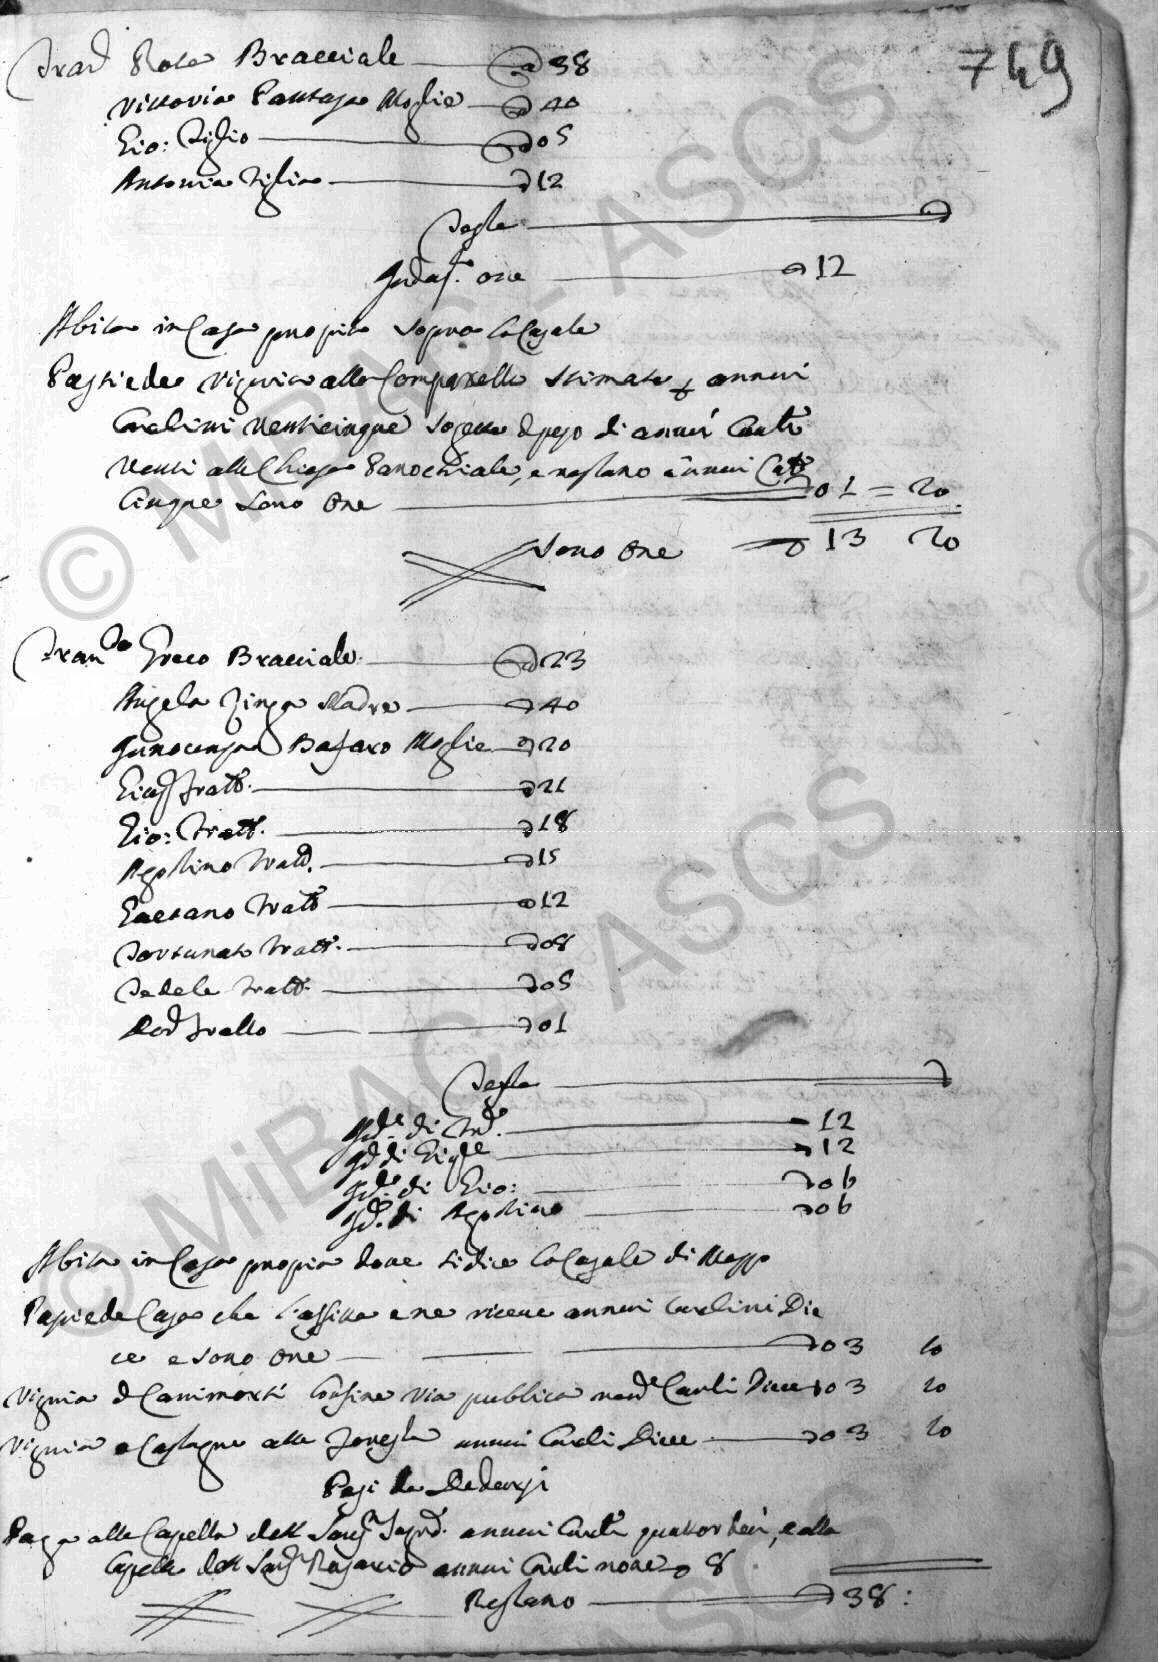 749
Fran.co Rosa Bracciale 38
Vittoria Pantusa Moglie 40
Gio: Figlio 05
Antonia Figlia 12
Testa
Ind.a once 12
Abita in Casa propria sopra lo Casale
Possiede vignia alla Comparella stimata p annui
Carlini venticinque sogetta a peso di annui Carli
venti alla Chiesa Parochiale, e restano annui Carli
Cinque sono onc 01 = 20
sono onc 13 20
Fran.co Greco Bracciale 23
Angela Zinga Madre 40
Innocenza Bafaro Moglie 20
Gius. fratt. 21
Gio: Fratt. 18
Agostino Fratt. 15
Gaetano Fratt. 12
Fortunato Fratt. 08
Fedele Fratt. 05
fratello 01
Testa
Ind.a di Fr. 12
Ind.a di Gius.e 12
Ind.a di Gio: 06
Ind.a di Agostino 06
Abita in Casa propria dove si dice lo Casale di Mezzo
Possiede Casa che l'affitta e ne riceve annui Carlini Die
ce e sono onc 03 10
Vignia Confine via pubblica Carli Diece 03 10
Vignia e Castagne alla annui Carli Diece 03 10
Pesi da Dedursi
Paga alla Capella del annui Carli quattordeci, e alla
Capella del Rosario annui Carli nove 8
Restano 38:
© MiBAC - ASCS
© MiBAC - ASCS